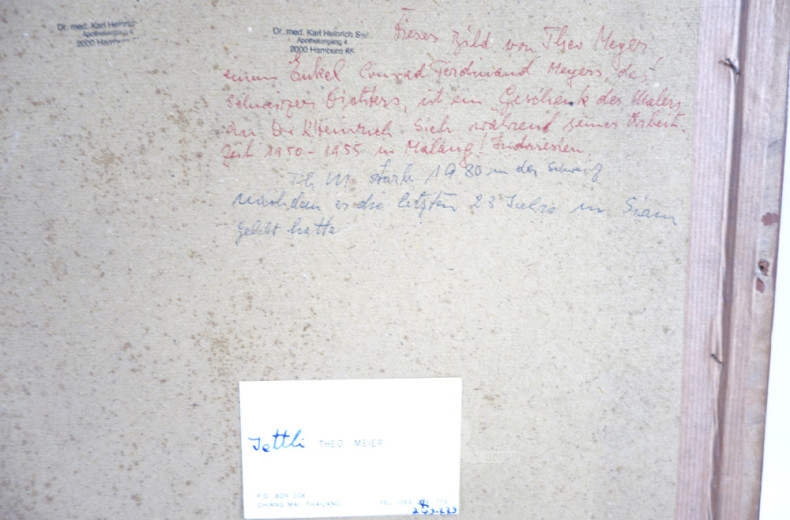 Dr. med. Karl Heinrich
Apothekergang 4
2000 Hamburg
Dr. med. Karl Heinrich
Apothekergang 4
2000 Hamburg
Dieses Bild von Theo Meyer,
einem Enkel Conrad Ferdinand Meyers, des
schweizer Dichters, ist ein Geschenk des Malers
an Dr K Heinrich während seiner Arbeit
Zeit 1950-1955 in Malang! Indonesien.
Th M. starb 1980 in der Schweiz
nachdem er die letzten 23 Jahre in Siam
gelebt hatte
THEO MEIER
P.O. BOX
CHIANG MAI, THAILAND
TEL.